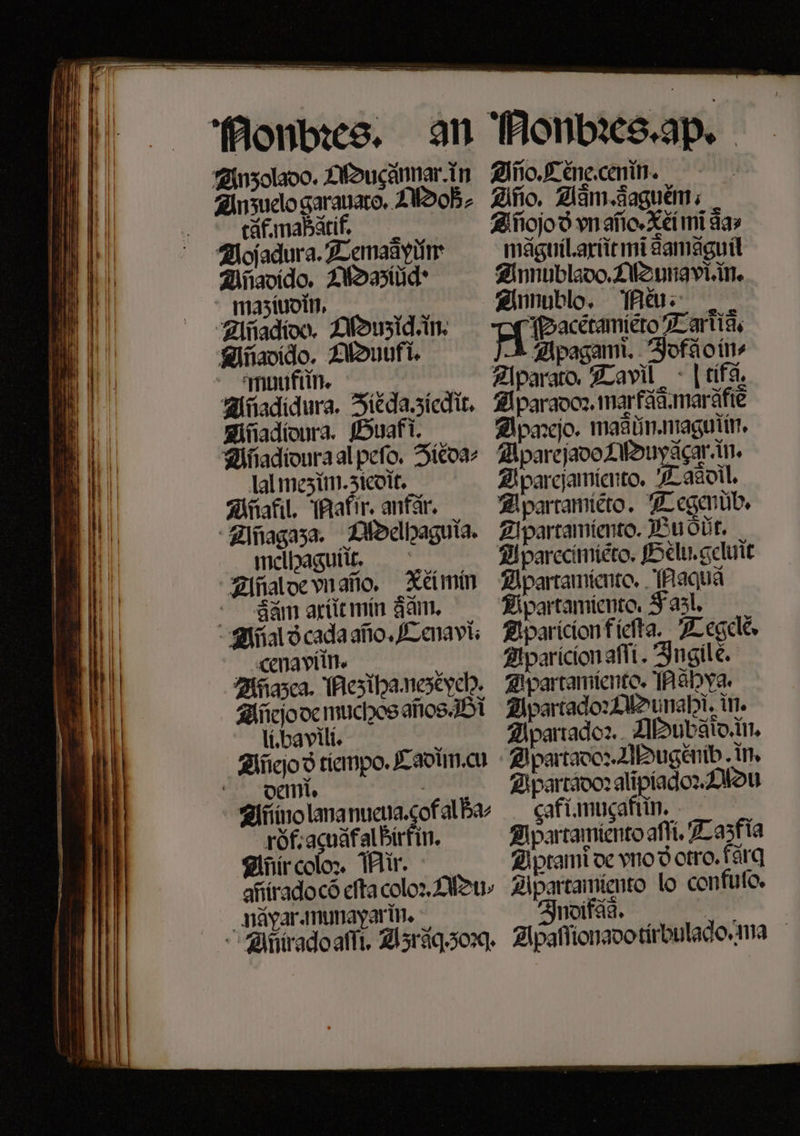 Nonbres. an
Anzolado. Muçánnar.in
Anzuelo garauato. Mdoh-
táf.mahátif.
Añojadura. Temaáyúnr
Añadido. Mdaziúd.
maziudin,
Añadido. Muzid.in.
Añadido. Muufi.
muufiin.
Añadidura. Ziéda.ziedit.
Añadidura. Guafi.
Añadidura al peso. Ziéda-
lalmezim.ziedit.
Añafil. Nafir. anfár.
Añagaza. Melhaguia.
melhaguiit.
Añal de vn año. Xéi min
áám ariit min áám.
Añal d cada año. Cenavi;
cenaviin.
Añazca. Neziha.nezéych.
Añejo de muchos años. Bi
li.bavili.
Añejo d tiempo. Cadim.cu
demi.
Añino lana nueua.çof al ha-
róf.açuáfalhirfin.
Añir color. Nir.
añirado có esta color. Mu-
náyar.munayarin.
Añirado assi. Azráq.zorq.
Nonbres.ap.
Año. Céne.cenin.
Año. Aám.áaguém;
Añojo d vn año. Xéi mi áa-
máguil.ariit mi áamáguil
Annublado. Munavi.in.
Annublo. Néu.
Apacétamiéto Tartiá,
Apagami. Jofáoin-
Aparato. Tavil | tifá.
Aparador. marfáá.maráfié
Aparejo. maáún.maguiin.
Aparejado Muyáçar.in.
Aparejamiento. Taádil.
Apartamiéto. Tegenúb.
Apartamiento. Buóút.
Aparecimiéto. Gélu.geluit
Apartamiento. Naquá
Apartamiento. Fazl.
Aparicion fiesta. Tegelé.
Aparicion assi. Ingilé.
Apartamiento. Náhya.
Apartador Munahi. in.
Apartador. Mubáio.in.
Apartador. Mugénib. in.
Apartador alipiador. Mu
çafi.muçafiin.
Apartamiento assi. Tazfia
Aptami de vno d otro. fárq
Apartamiento lo confuso.
Indifáá.
Apassionado tirbulado.ma